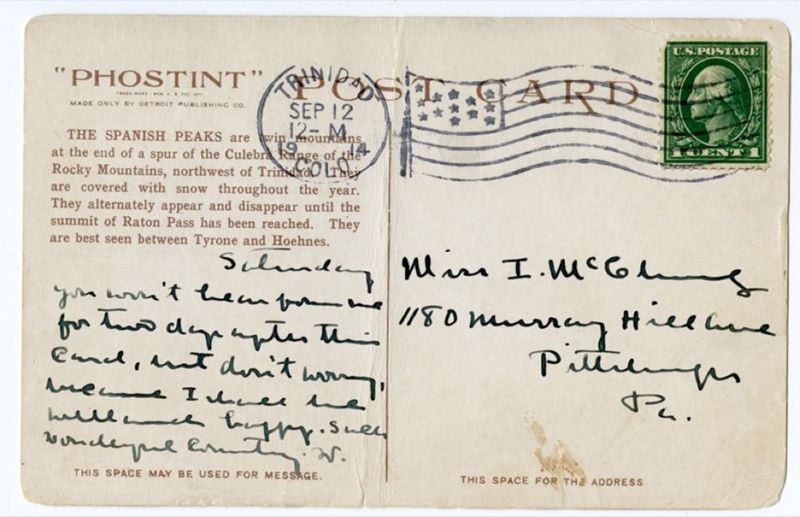 "PHOSTINT"
TRADE MARK
MADE ONLY BY DETROIT PUBLISHING CO.
POST CARD
TRINIDAD
SEP 12
12-M
1914
COLO.
U.S. POSTAGE
1 CENT 1
THE SPANISH PEAKS are twin mountains
at the end of a spur of the Culebra Range of the
Rocky Mountains, northwest of Trinidad. They
are covered with snow throughout the year.
They alternately appear and disappear until the
summit of Raton Pass has been reached. They
are best seen between Tyrone and Hoehnes.
Saturday
you won't hear from me
for two days after this
Card, but don't worry,
because I shall be
well and happy. Such
Wonderful Country. W.
THIS SPACE MAY BE USED FOR MESSAGE.
Miss I. McClung
1180 Murray Hill Ave
Pittsburgh
Pa.
THIS SPACE FOR THE ADDRESS